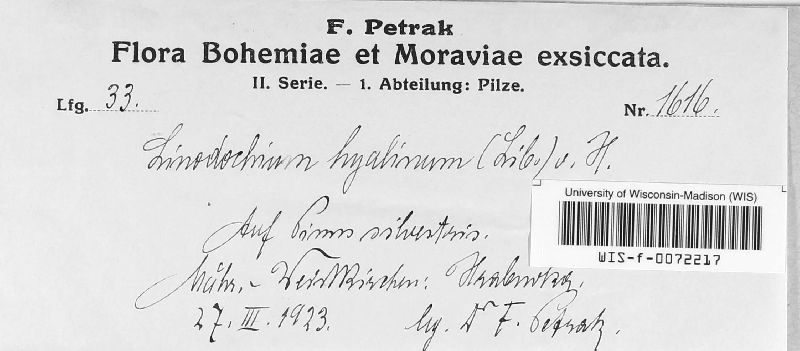 F. Petrak
Flora Bohemiae et Moraviae exsiccata.
II. Serie. — 1. Abteilung: Pilze.
Lfg. 33. Nr. 1616.
Linodochium hyalinum (Lib.) v. H.
University of Wisconsin-Madison (WIS)
WIS-f-0072217
Auf Pinus silvestris.
Mähr.-Weisskirchen: Hrabuvka,
27. III. 1923. lg. Dr F. Petrak.